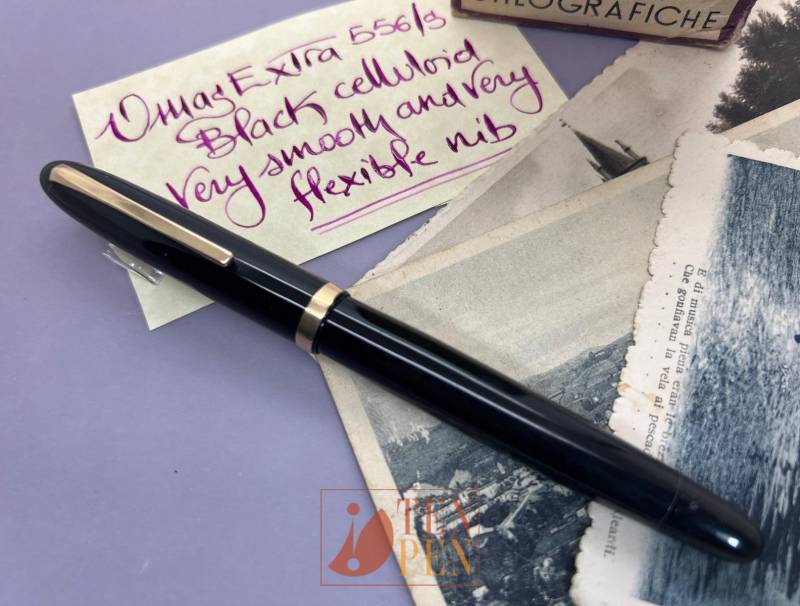 STILOGRAFICHE
Omas Extra 556/S
Black celluloid
Very smooth and very
flexible nib
E di musica piena eran le
Che gonfiavan la vela ai
TEN
PEN